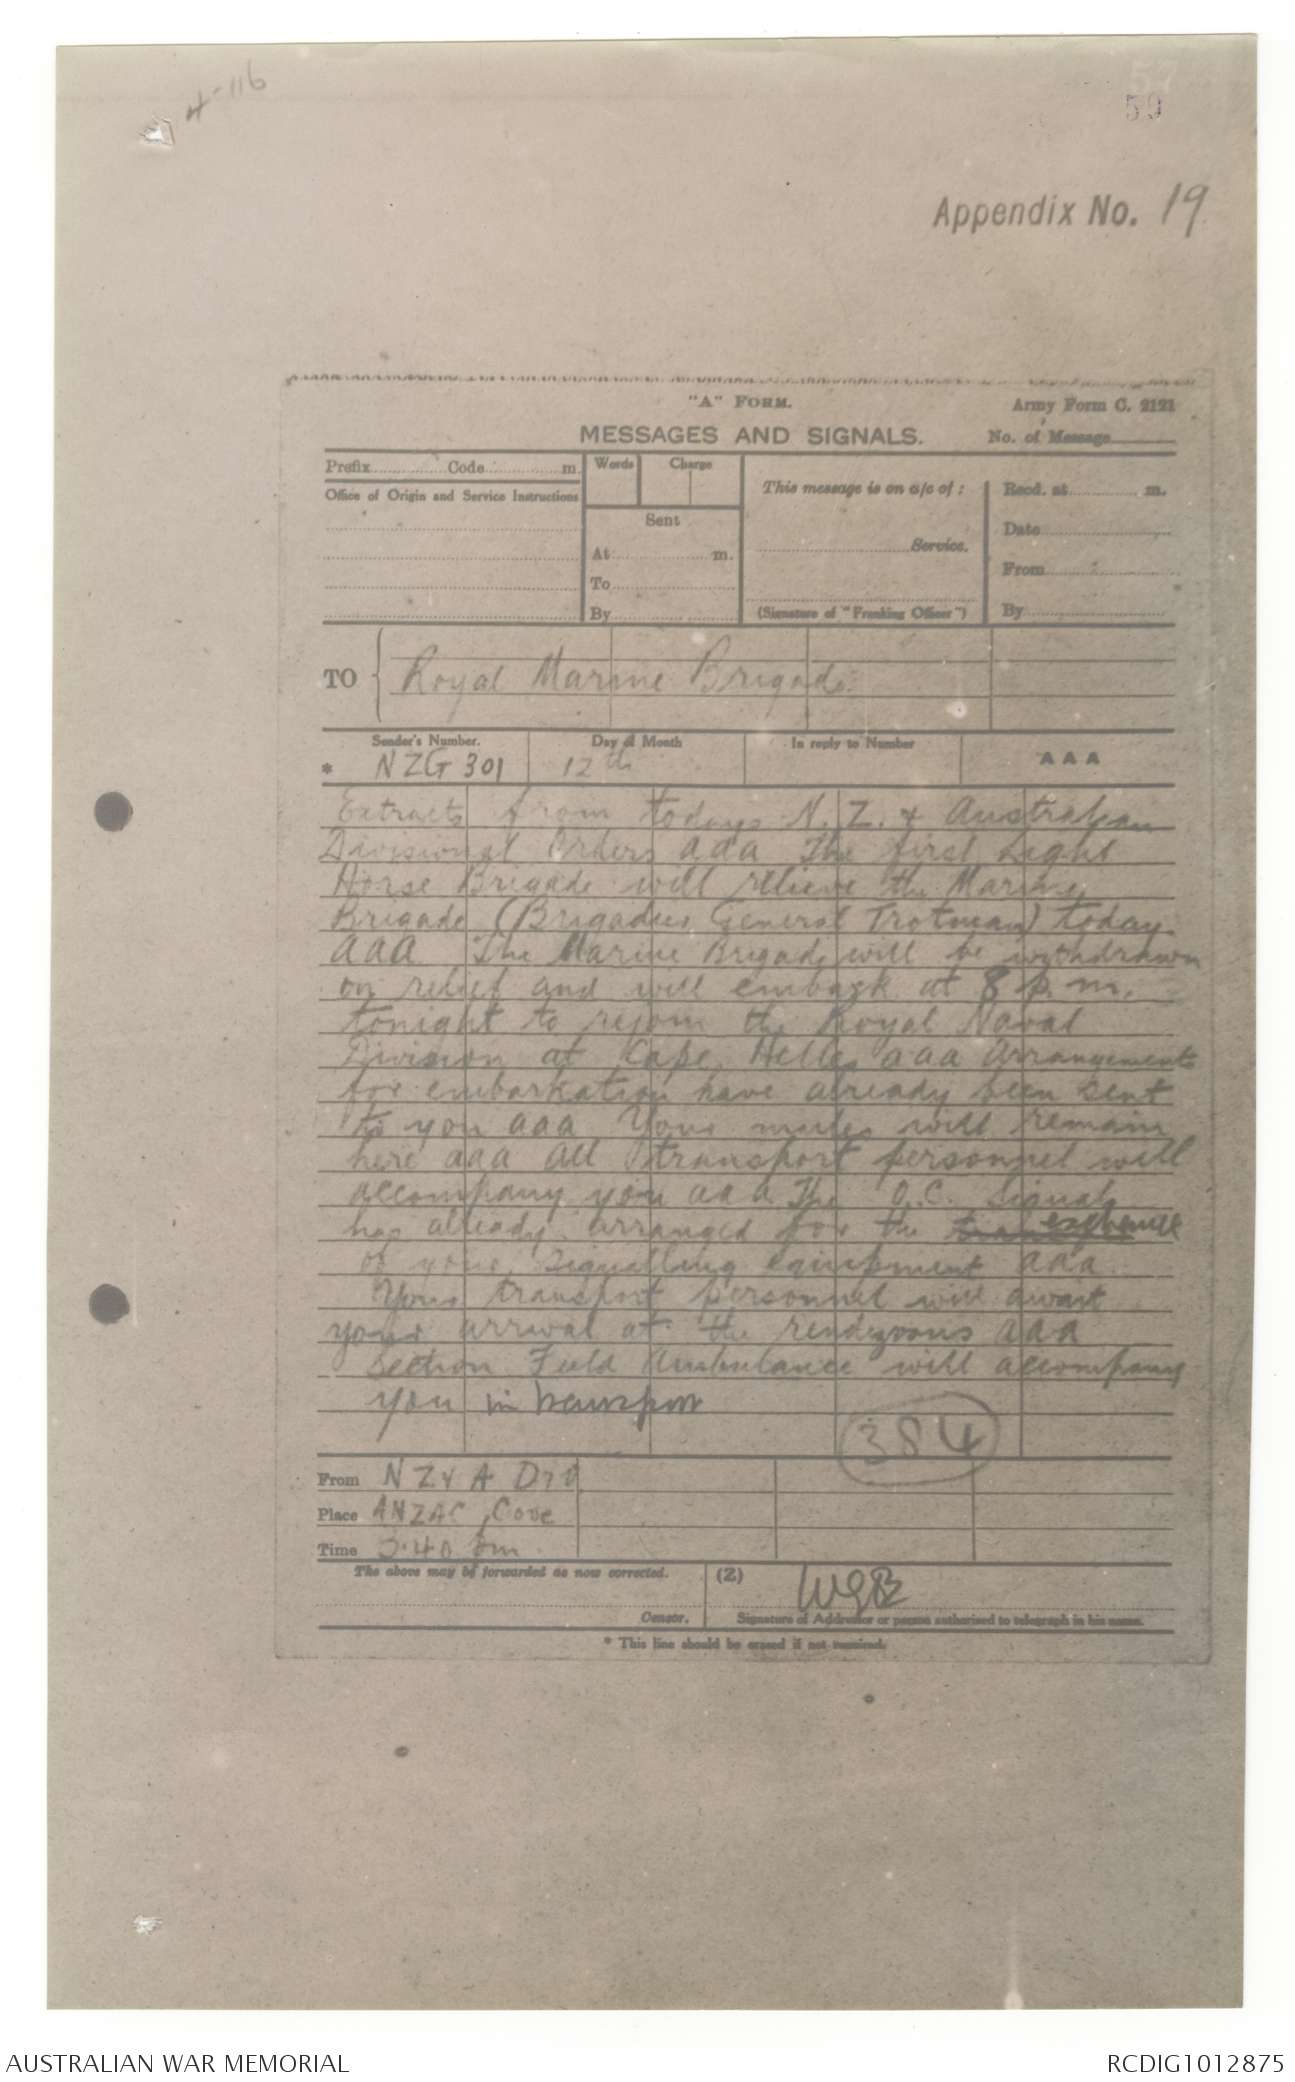 4-116
57
59
Appendix No. 19
"A" FORM.
Army Form C. 2121
MESSAGES AND SIGNALS.
No. of Message
Prefix Code m.
Words Charge
This message is on a/c of :
Recd. at m.
Office of Origin and Service Instructions
Sent
Date
At m.
Service.
From
To
By
(Signature of "Franking Officer")
By
TO { Royal Marine Brigade
Sender's Number. Day of Month In reply to Number AAA
* NZG 301 12th
Extracts from todays N.Z. & Australian
Divisional Orders aaa The first Light
Horse Brigade will relieve the Marine
Brigade (Brigadier General Trotman) today
aaa The Marine Brigade will be withdrawn
on relief and will embark at 8 p.m.
tonight to rejoin the Royal Naval
Division at Cape Helles aaa Arrangements
for embarkation have already been sent
to you aaa Your mules will remain
here aaa All transport personnel will
accompany you aaa The O.C. Signals
has already arranged for the exchange
of your signalling equipment aaa
Your transport personnel will await
your arrival at the rendezvous aaa
Section Field Ambulance will accompany
you in transport
384
From NZ & A Div
Place ANZAC Cove
Time 3.40 pm.
The above may be forwarded as now corrected. (Z)
WGB
Censor. Signature of Addressor or person authorised to telegraph in his name.
* This line should be erased if not required.
AUSTRALIAN WAR MEMORIAL
RCDIG1012875